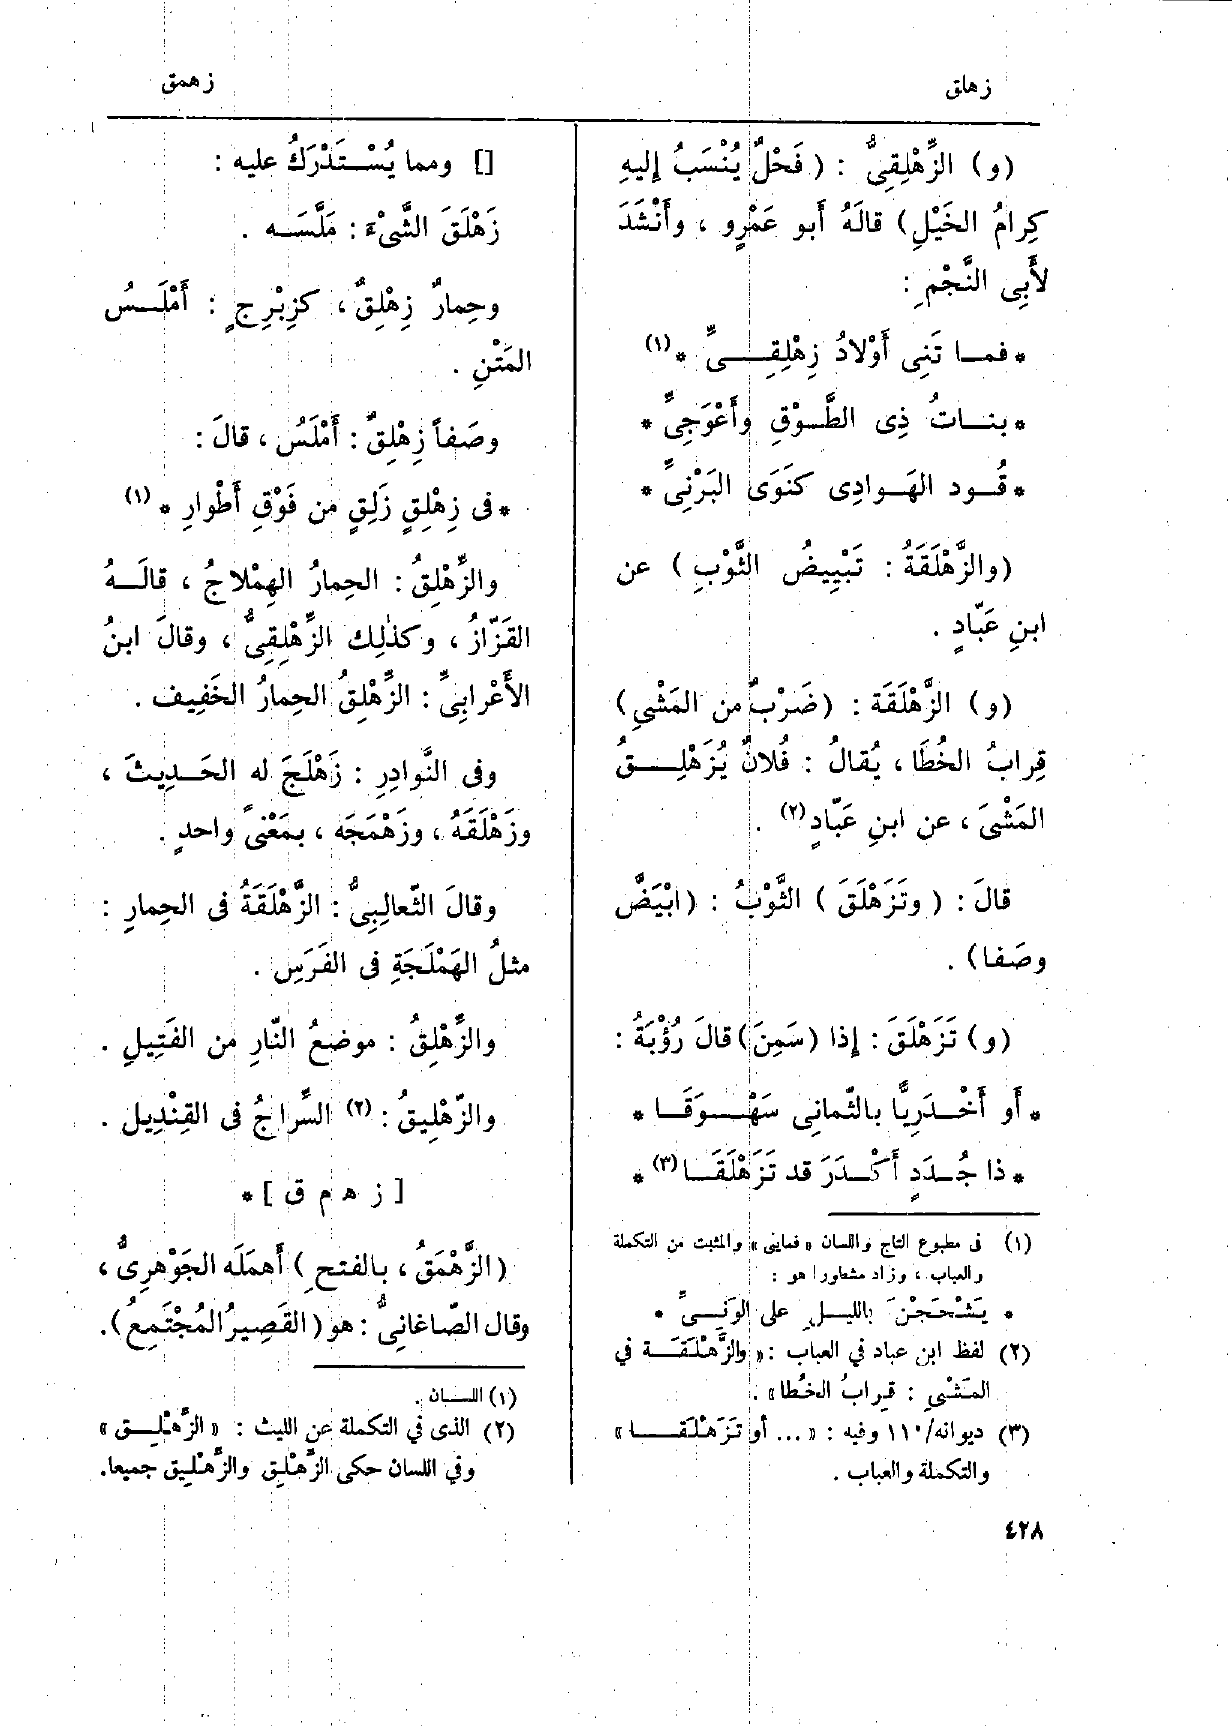 زهلق
زهمق
(و) الزِّهْلِقِىُّ : (فَحْلٌ يُنْسَبُ إليهِ
كِرامُ الخَيْلِ) قالَهُ أبو عَمْرٍو ، وأَنْشَدَ
لأَبِى النَّجْمِ :
* فمـا تَنِى أَوْلادُ زِهْلِقِـىٍّ * (١)
* بنـاتُ ذِى الطَّـوْقِ وأَعْوَجِىٍّ *
* قُـود الهَـوادِى كنَوَى البَرْنِىِّ *
(والزَّهْلَقَةُ : تَبْيِيضُ الثَّوْبِ) عن
ابنِ عَبّادٍ .
(و) الزَّهْلَقَة : (ضَرْبٌ من المَشْىِ)
قِرابُ الخُطَا ، يُقالُ : فُلانٌ يُزَهْلِـقُ
المَشْىَ ، عن ابنِ عَبّادٍ (٢) .
قالَ : (وتَزَهْلَقَ) الثَّوْبُ : (ابْيَضَّ
وصَفا) .
(و) تَزَهْلَقَ : إذا (سَمِنَ) قالَ رُؤْبَةُ :
* أَو أَخْـدَرِيًّا بالثّمانِى سَهْـوَقَـا *
* ذا جُـدَدٍ أَكْـدَرَ قد تَزَهْلَقَـا (٣) *
(١) فى مطبوع التاج واللسان «فمايى» والمثبت من التكملة
والعباب ، وزاد مشطورا هو :
* يَشْحَجْنَ بالليـل على الوَنِـىِّ *
(٢) لفظ ابن عباد في العباب : «والزَّهْلَقَـة في
المَشْىِ : قِرابُ الخُطا» .
(٣) ديوانه/١١٠ وفيه : «... أو تَزَهْلَقَـا»
والتكملة والعباب .
[] ومما يُسْـتَدْرَكُ عليه :
زَهْلَقَ الشَّىْءَ : مَلَّسَـه .
وحِمارٌ زِهْلِقٌ ، كزِبْرِجٍ : أَمْلَـسُ
المَتْنِ .
وصَفاً زِهْلِقٌ : أَمْلَسُ ، قالَ :
* فى زِهْلِقٍ زَلِقٍ من فَوْقِ أَطْوارِ * (١)
والزِّهْلِقُ : الحِمارُ الهِمْلاجُ ، قالَـهُ
القَزّازُ ، وكذٰلِك الزِّهْلِقِىُّ ، وقالَ ابنُ
الأَعْرابِىِّ : الزِّهْلِقُ الحِمارُ الخَفِيف .
وفى النَّوادِرِ : زَهْلَجَ له الحَـدِيثَ ،
وزَهْلَقَهُ ، وزَهْمَجَه ، بمَعْنىً واحدٍ .
وقالَ الثّعالِبِىُّ : الزَّهْلَقَةُ فى الحِمارِ :
مثلُ الهَمْلَجَةِ فى الفَرَسِ .
والزِّهْلِقُ : موضعُ النّارِ من الفَتِيلِ .
والزّهْلِيقُ : (٢) السِّراجُ فى القِنْدِيل .
[ ز هـ م ق ] *
(الزَّهْمَقُ ، بالفتحِ) أَهمَلَه الجَوْهرِىُّ ،
وقال الصّاغانِىُّ : هو (القَصِيرُ المُجْتَمِعُ).
(١) اللسـان .
(٢) الذى في التكملة عن الليث : «الزَّهْلِـق»
وفي اللسان حكى الزَّهْلِق والزَّهْلِيق جميعا.
٤٢٨